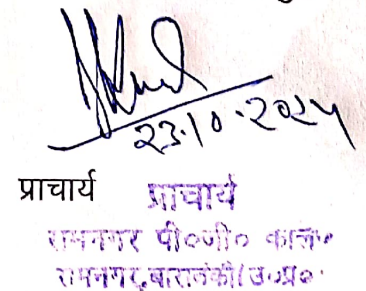 23.10.2025
प्राचार्य प्राचार्य
रामनगर पी०जी० कालेज
रामनगर, बाराबंकी (उ०प्र०)